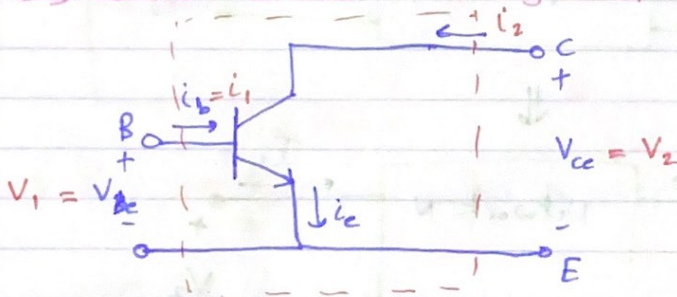 i₂
C
i_b = i₁
+
B
+
V_ce = V₂
V₁ = V_be
-
i_e
-
E